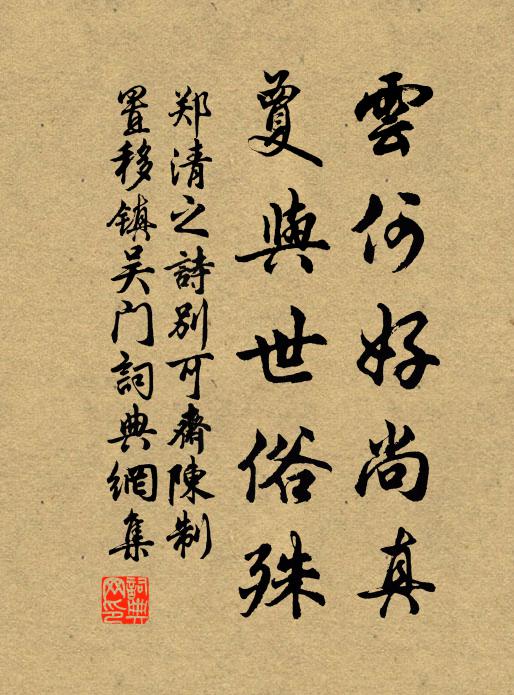 雲何好尚真
夐與世俗殊
郑清之詩別可齋陳制
置移鎮吴门詞典網集
詞典网印